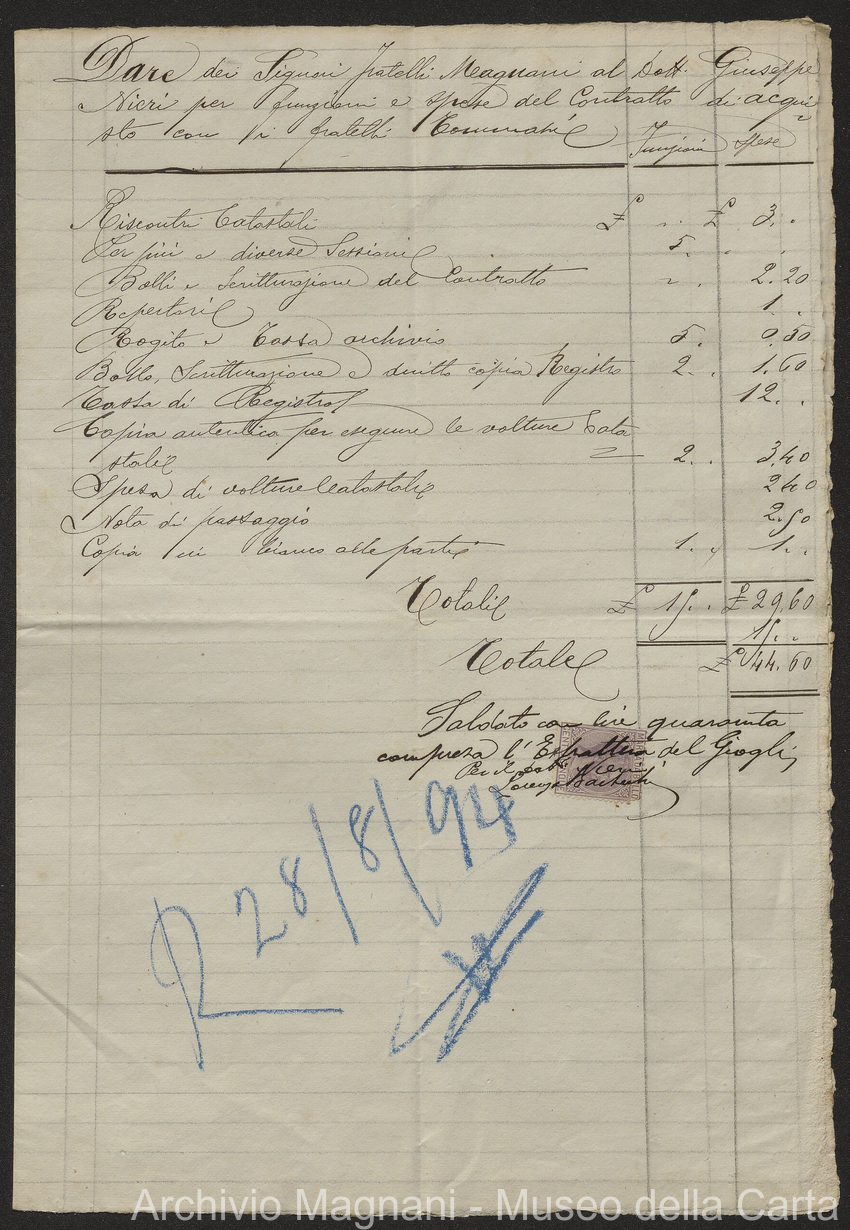 Dare dei Signori fratelli Magnani al Dott. Giuseppe
Nieri per funzioni e spese del Contratto di acqui
sto con i fratelli Tommasi
Funzioni Spese
Riscontri Catastali £ " . £ 3. "
Per gini e diverse Sessioni 5. " "
Bolli e Scritturazione del Contratto " . 2.20
Repertori 1 .
Rogito e Tassa archivio 5. 0.50
Bollo, Scritturazione e diritto copia Registro 2. . 1.60
Tassa di Registro 12. .
Copia autentica per eseguire le volture Cata
stali 2. . 3.40
Spesa di volture Catastali 2 40
Nota di passaggio 2.50
Copia in bianco alle parti 1. " 1. .
Totali £ 15. . £ 29.60
15. .
Totale £ 44.60
Saldato con lire quaranta
compresa l' del
Per il Dott. Nieri
Lorenzo
R 28/8/94
Archivio Magnani - Museo della Carta